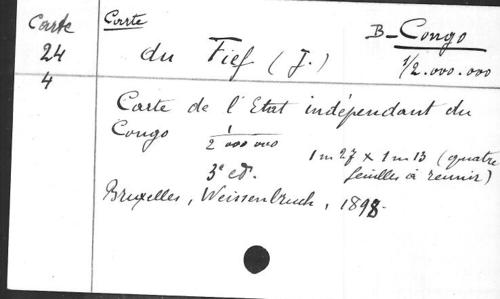 Carte
24
4
Carte
B-Congo
du Fief (J.)
1/2.000.000
Carte de l'Etat indépendant du
Congo 1/2 000 000
1m27 x 1m13 (quatre
feuilles à réunir)
3e ed.
Bruxelles, Weissenbruch, 1898.